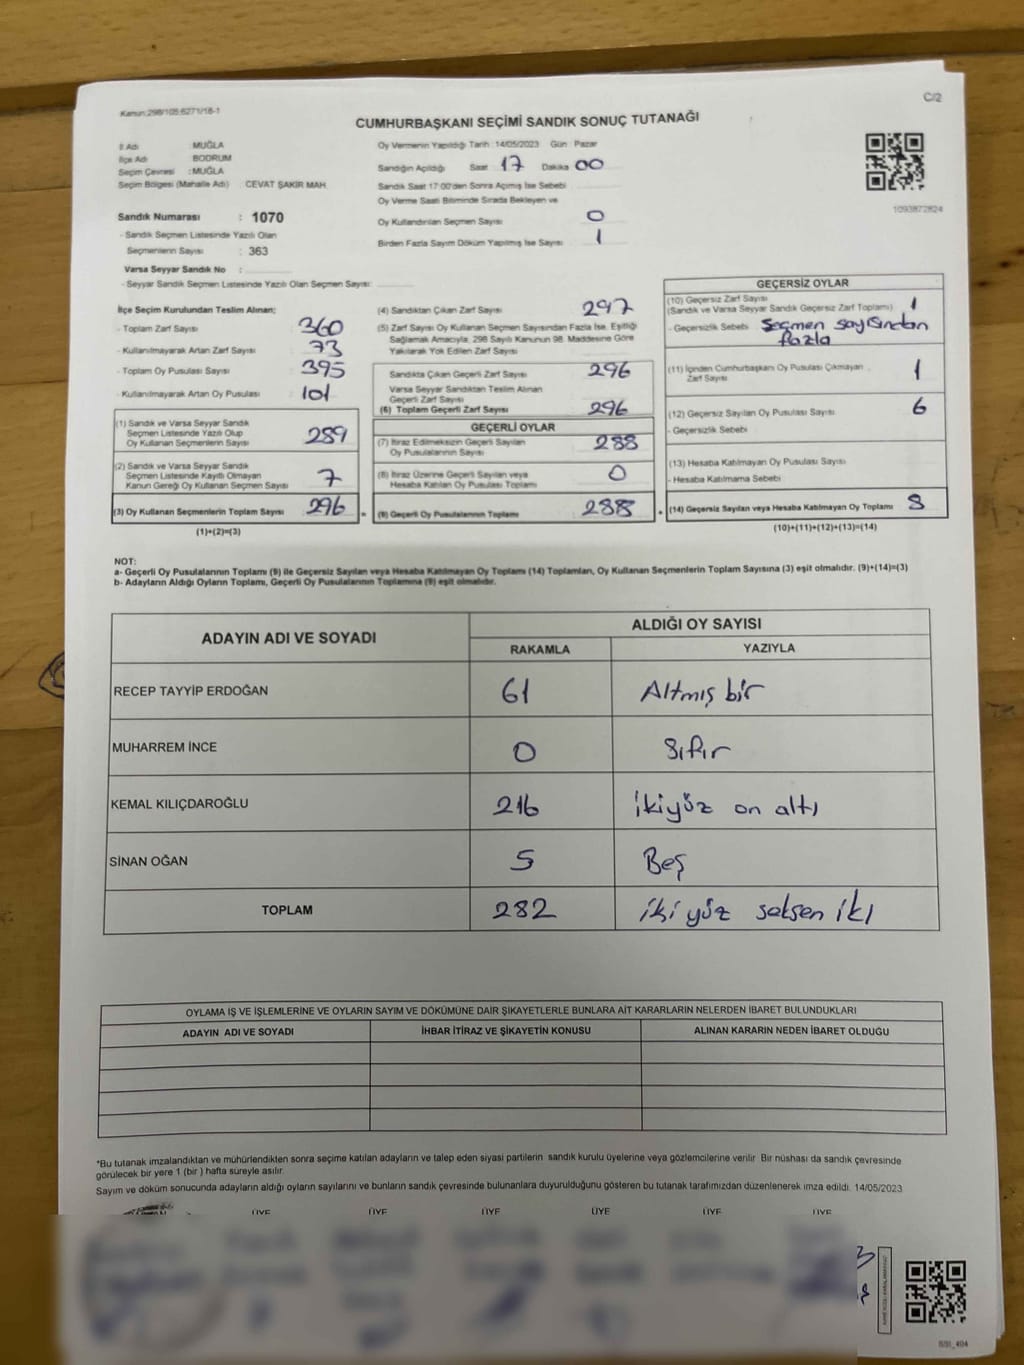 Kanun:298/105:6271/18-1
C/2
CUMHURBAŞKANI SEÇİMİ SANDIK SONUÇ TUTANAĞI
İl Adı MUĞLA
İlçe Adı BODRUM
Seçim Çevresi :MUĞLA
Seçim Bölgesi (Mahalle Adı) : CEVAT ŞAKİR MAH.
Oy Vermenin Yapıldığı Tarih :14/05/2023 Gün : Pazar
Sandığın Açıldığı Saat 17 Dakika 00
Sandık Saat 17:00'den Sonra Açımış İse Sebebi
Oy Verme Saati Bitiminde Sırada Bekleyen ve
Oy Kullandırılan Seçmen Sayısı 0
Birden Fazla Sayım Döküm Yapılmış İse Sayısı 1
1093872824
Sandık Numarası : 1070
- Sandık Seçmen Listesinde Yazılı Olan
Seçmenlerin Sayısı : 363
Varsa Seyyar Sandık No :
- Seyyar Sandık Seçmen Listesinde Yazılı Olan Seçmen Sayısı:
İlçe Seçim Kurulundan Teslim Alınan;
- Toplam Zarf Sayısı 360
- Kullanılmayarak Artan Zarf Sayısı 73
- Toplam Oy Pusulası Sayısı 395
- Kullanılmayarak Artan Oy Pusulası 101
(1) Sandık ve Varsa Seyyar Sandık
Seçmen Listesinde Yazılı Olup
Oy Kullanan Seçmenlerin Sayısı 289
(2) Sandık ve Varsa Seyyar Sandık
Seçmen Listesinde Kayıtlı Olmayan
Kanun Gereği Oy Kullanan Seçmen Sayısı 7
(3) Oy Kullanan Seçmenlerin Toplam Sayısı 296 =
(1)+(2)=(3)
(4) Sandıktan Çıkan Zarf Sayısı 297
(5) Zarf Sayısı Oy Kullanan Seçmen Sayısından Fazla İse, Eşitliği
Sağlamak Amacıyla, 298 Sayılı Kanunun 98. Maddesine Göre
Yakılarak Yok Edilen Zarf Sayısı
Sandıkta Çıkan Geçerli Zarf Sayısı 296
Varsa Seyyar Sandıktan Teslim Alınan
Geçerli Zarf Sayısı
(6) Toplam Geçerli Zarf Sayısı 296
GEÇERLİ OYLAR
(7) İtiraz Edilmeksizin Geçerli Sayılan
Oy Pusulalarının Sayısı 288
(8) İtiraz Üzerine Geçerli Sayılan veya
Hesaba Katılan Oy Pusulası Toplamı 0
(9) Geçerli Oy Pusulalarının Toplamı 288 +
GEÇERSİZ OYLAR
(10) Geçersiz Zarf Sayısı
(Sandık ve Varsa Seyyar Sandık Geçersiz Zarf Toplamı) 1
- Geçersizlik Sebebi Seçmen sayısından
fazla
(11) İçinden Cumhurbaşkanı Oy Pusulası Çıkmayan
Zarf Sayısı 1
(12) Geçersiz Sayılan Oy Pusulası Sayısı 6
- Geçersizlik Sebebi
(13) Hesaba Katılmayan Oy Pusulası Sayısı
- Hesaba Katılmama Sebebi
(14) Geçersiz Sayılan veya Hesaba Katılmayan Oy Toplamı 8
(10)+(11)+(12)+(13)=(14)
NOT:
a- Geçerli Oy Pusulalarının Toplamı (9) ile Geçersiz Sayılan veya Hesaba Katılmayan Oy Toplamı (14) Toplamları, Oy Kullanan Seçmenlerin Toplam Sayısına (3) eşit olmalıdır. (9)+(14)=(3)
b- Adayların Aldığı Oyların Toplamı, Geçerli Oy Pusulalarının Toplamına (9) eşit olmalıdır.
ADAYIN ADI VE SOYADI
ALDIĞI OY SAYISI
RAKAMLA YAZIYLA
RECEP TAYYİP ERDOĞAN 61 Altmış bir
MUHARREM İNCE 0 Sıfır
KEMAL KILIÇDAROĞLU 216 ikiyüz on altı
SİNAN OĞAN 5 Beş
TOPLAM 282 iki yüz seksen iki
OYLAMA İŞ VE İŞLEMLERİNE VE OYLARIN SAYIM VE DÖKÜMÜNE DAİR ŞİKAYETLERLE BUNLARA AİT KARARLARIN NELERDEN İBARET BULUNDUKLARI
ADAYIN ADI VE SOYADI İHBAR İTİRAZ VE ŞİKAYETİN KONUSU ALINAN KARARIN NEDEN İBARET OLDUĞU
*Bu tutanak imzalandıktan ve mühürlendikten sonra seçime katılan adayların ve talep eden siyasi partilerin sandık kurulu üyelerine veya gözlemcilerine verilir Bir nüshası da sandık çevresinde
görülecek bir yere 1 (bir ) hafta süreyle asılır.
Sayım ve döküm sonucunda adayların aldığı oyların sayılarını ve bunların sandık çevresinde bulunanlara duyurulduğunu gösteren bu tutanak tarafımızdan düzenlenerek imza edildi. 14/05/2023
ÜYE ÜYE ÜYE ÜYE ÜYE ÜYE